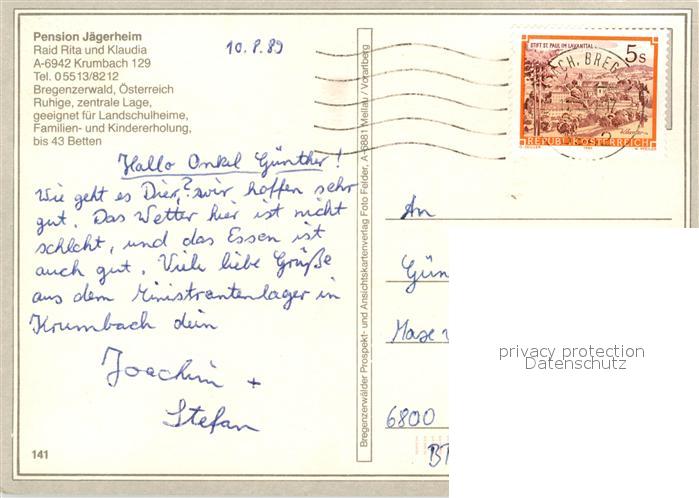 Pension Jägerheim
Raid Rita und Klaudia
A-6942 Krumbach 129
Tel. 05513/8212
Bregenzerwald, Österreich
Ruhige, zentrale Lage,
geeignet für Landschulheime,
Familien- und Kindererholung,
bis 43 Betten
10.8.89
Hallo Onkel Günther!
Wie geht es Dir? wir hoffen sehr
gut. Das Wetter hier ist nicht
schlecht, und das Essen ist
auch gut. Viele liebe Grüße
aus dem Ministrantenlager in
Krumbach dein
Joachim +
Stefan
141
Bregenzerwälder Prospekt- und Ansichtskartenverlag Foto Felder, A-6881 Mellau / Vorarlberg
STIFT ST. PAUL IM LAVANTTAL
5s
REPUBLIK ÖSTERREICH
An
Gün
6800
privacy protection
Datenschutz